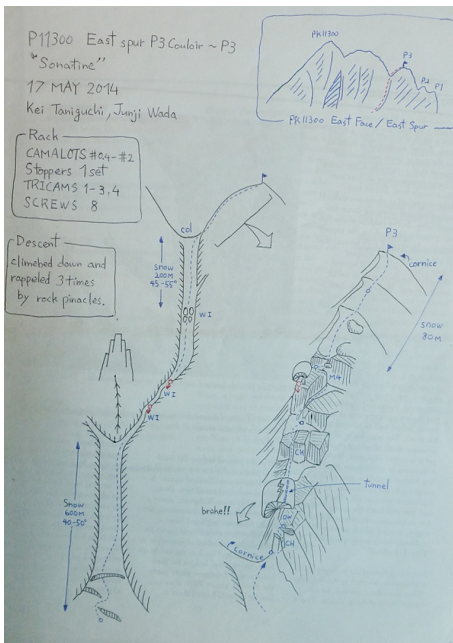 P11300 East spur P3 Couloir ~ P3
"Sonatine"
17 MAY 2014
Kei Taniguchi, Junji Wada
Rack
CAMALOTS #0.4-#2
Stoppers 1 set
TRICAMS 1-3, 4
SCREWS 8
Descent
climebed down and
rappeled 3 times
by rock pinacles.
PK11300
P3
P2
P1
PK11300 East Face / East Spur
col
snow
200M
45-55°
WI
WI
WI
Snow
600M
40-50°
P3
cornice
snow
80M
M4
CH
tunnel
broke!!
OW
CH
cornice